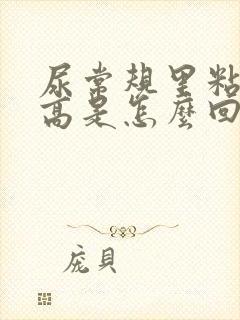 尿常规里粘
高是怎麼回
庞貝